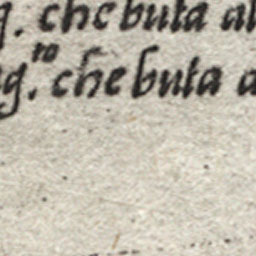 g. chebula al
g.ro chebula a